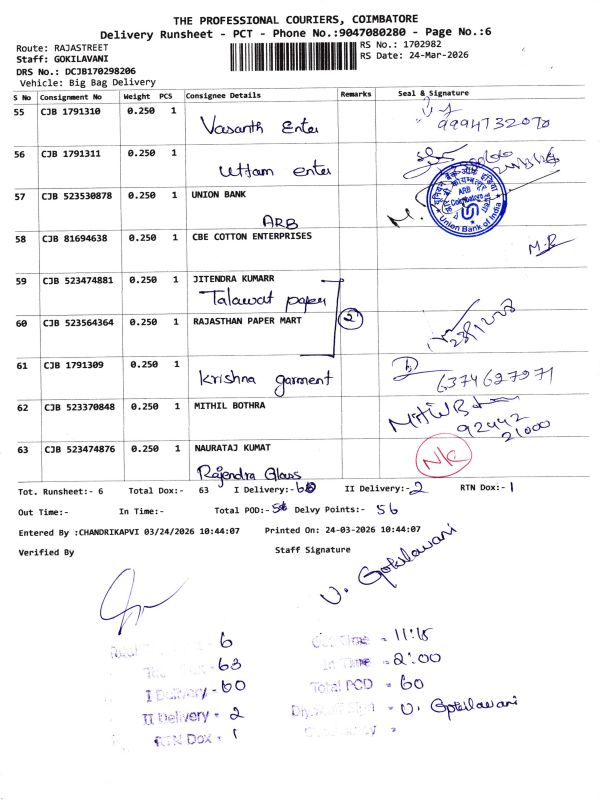 THE PROFESSIONAL COURIERS, COIMBATORE
Delivery Runsheet - PCT - Phone No.:9047080280 - Page No.:6
Route: RAJASTREET
RS No.: 1702982
Staff: GOKILAVANI
RS Date: 24-Mar-2026
DRS No.: DCJB170298206
Vehicle: Big Bag Delivery
S No Consignment No Weight PCS Consignee Details Remarks Seal & Signature
55 CJB 1791310 0.250 1 Vasanth Enter 9994732070
56 CJB 1791311 0.250 1 Uttam enter
57 CJB 523530878 0.250 1 UNION BANK
ARB
ARB
Coimbatore
Union Bank of India
58 CJB 81694638 0.250 1 CBE COTTON ENTERPRISES M.R
59 CJB 523474881 0.250 1 JITENDRA KUMARR
Talawat paper
60 CJB 523564364 0.250 1 RAJASTHAN PAPER MART 2
61 CJB 1791309 0.250 1 Krishna garment 6374627971
62 CJB 523370848 0.250 1 MITHIL BOTHRA
92442
21000
63 CJB 523474876 0.250 1 NAURATAJ KUMAT N/C
Rajendra Glass
Tot. Runsheet:- 6 Total Dox:- 63 I Delivery:-60 II Delivery:-2 RTN Dox:-1
Out Time:- In Time:- Total POD:- Delvy Points:- 56
Entered By :CHANDRIKAPVI 03/24/2026 10:44:07 Printed On: 24-03-2026 10:44:07
Verified By Staff Signature
V. Gokilavani
6 Out Time - 11:15
63 In Time - 2:00
I Delivery - 60 Total POD - 60
II Delivery - 2 V. Gokilavani
RTN Dox - 1